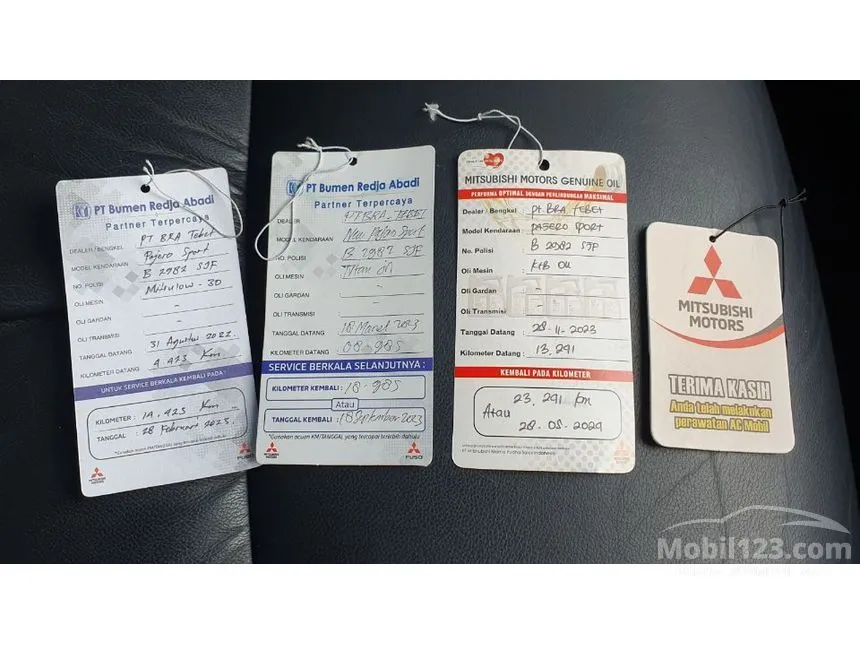 PT Bumen Redja Abadi
Partner Terpercaya
DEALER / BENGKEL : PT BRA Tebet
MODEL KENDARAAN : Pajero Sport
NO. POLISI : B 2982 SJF
OLI MESIN : - 30
OLI GARDAN : -
OLI TRANSMISI : -
TANGGAL DATANG : 31 Agustus 2022
KILOMETER DATANG : 4.423 Km
UNTUK SERVICE BERKALA KEMBALI PADA :
KILOMETER : 14.423 Km
TANGGAL : 28 Februari 2023
MITSUBISHI MOTORS
FUSO
PT Bumen Redja Abadi
Partner Terpercaya
DEALER : PT BRA TEBET
MODEL KENDARAAN : New Pajero Sport
NO. POLISI : B 2982 SJF
OLI MESIN :
OLI GARDAN : -
OLI TRANSMISI : -
TANGGAL DATANG : 18 Maret 2023
KILOMETER DATANG : 08.985
SERVICE BERKALA SELANJUTNYA :
KILOMETER KEMBALI : 18.985
Atau
TANGGAL KEMBALI : 18 September 2023
*Gunakan acuan KM/TANGGAL yang tercapai terlebih dahulu
MITSUBISHI MOTORS
FUSO
MITSUBISHI MOTORS GENUINE OIL
PERFORMA OPTIMAL DENGAN PERLINDUNGAN MAKSIMAL
Dealer / Bengkel : PT. BRA TEBET
Model Kendaraan : PAJERO SPORT
No. Polisi : B 2982 SJF
Oli Mesin : KTB OLI
Oli Gardan : -
Oli Transmisi : -
Tanggal Datang : 28-11-2023
Kilometer Datang : 13.291
KEMBALI PADA KILOMETER
23.291 km
Atau
28-05-2024
MITSUBISHI
MOTORS
TERIMA KASIH
Anda telah melakukan
perawatan AC Mobil
Mobil123.com